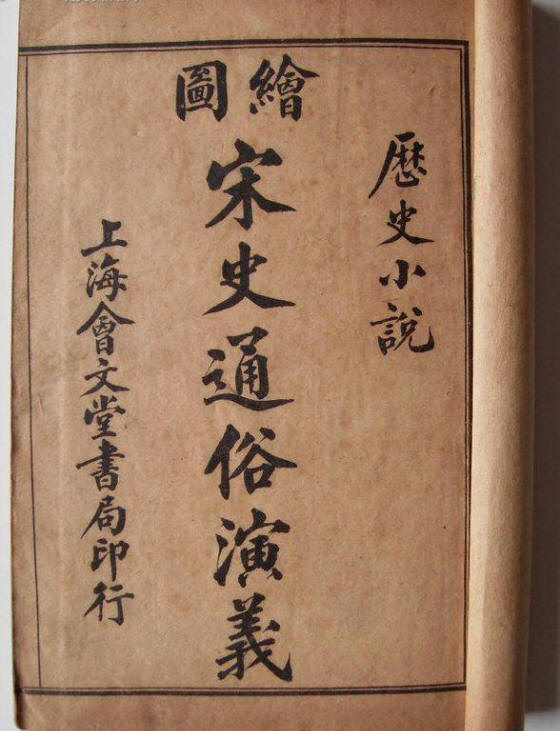 歷史小說
繪圖
宋史通俗演義
上海會文堂書局印行